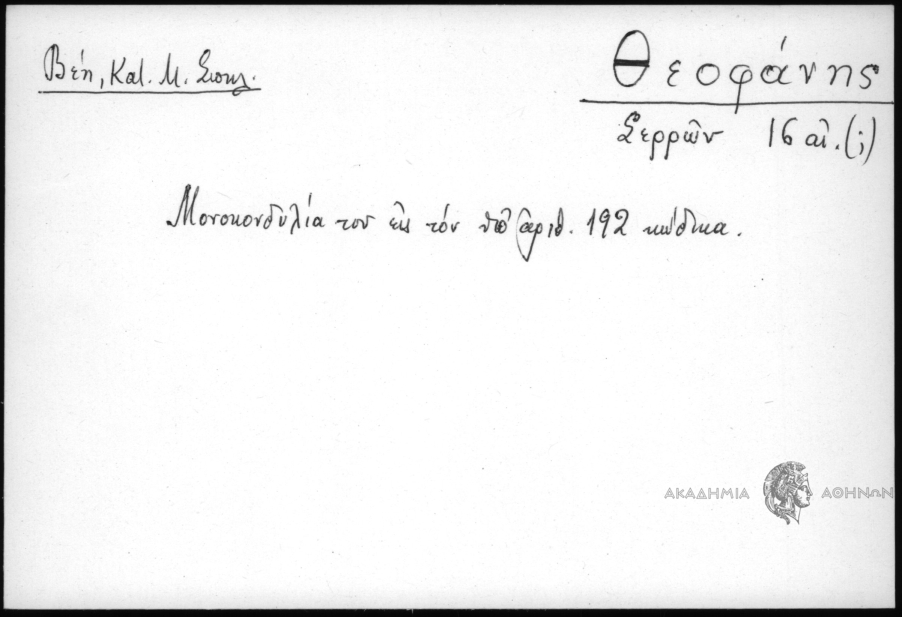 Βέη, Κατ. Μ. Σισκγ.
Θεοφάνης
Σερρῶν 16 αἰ. (;)
Μονοκονδυλία του εἰς τόν ὑπ' ἀριθ. 192 κώδικα.
ΑΚΑΔΗΜΙΑ ΑΘΗΝΩΝ